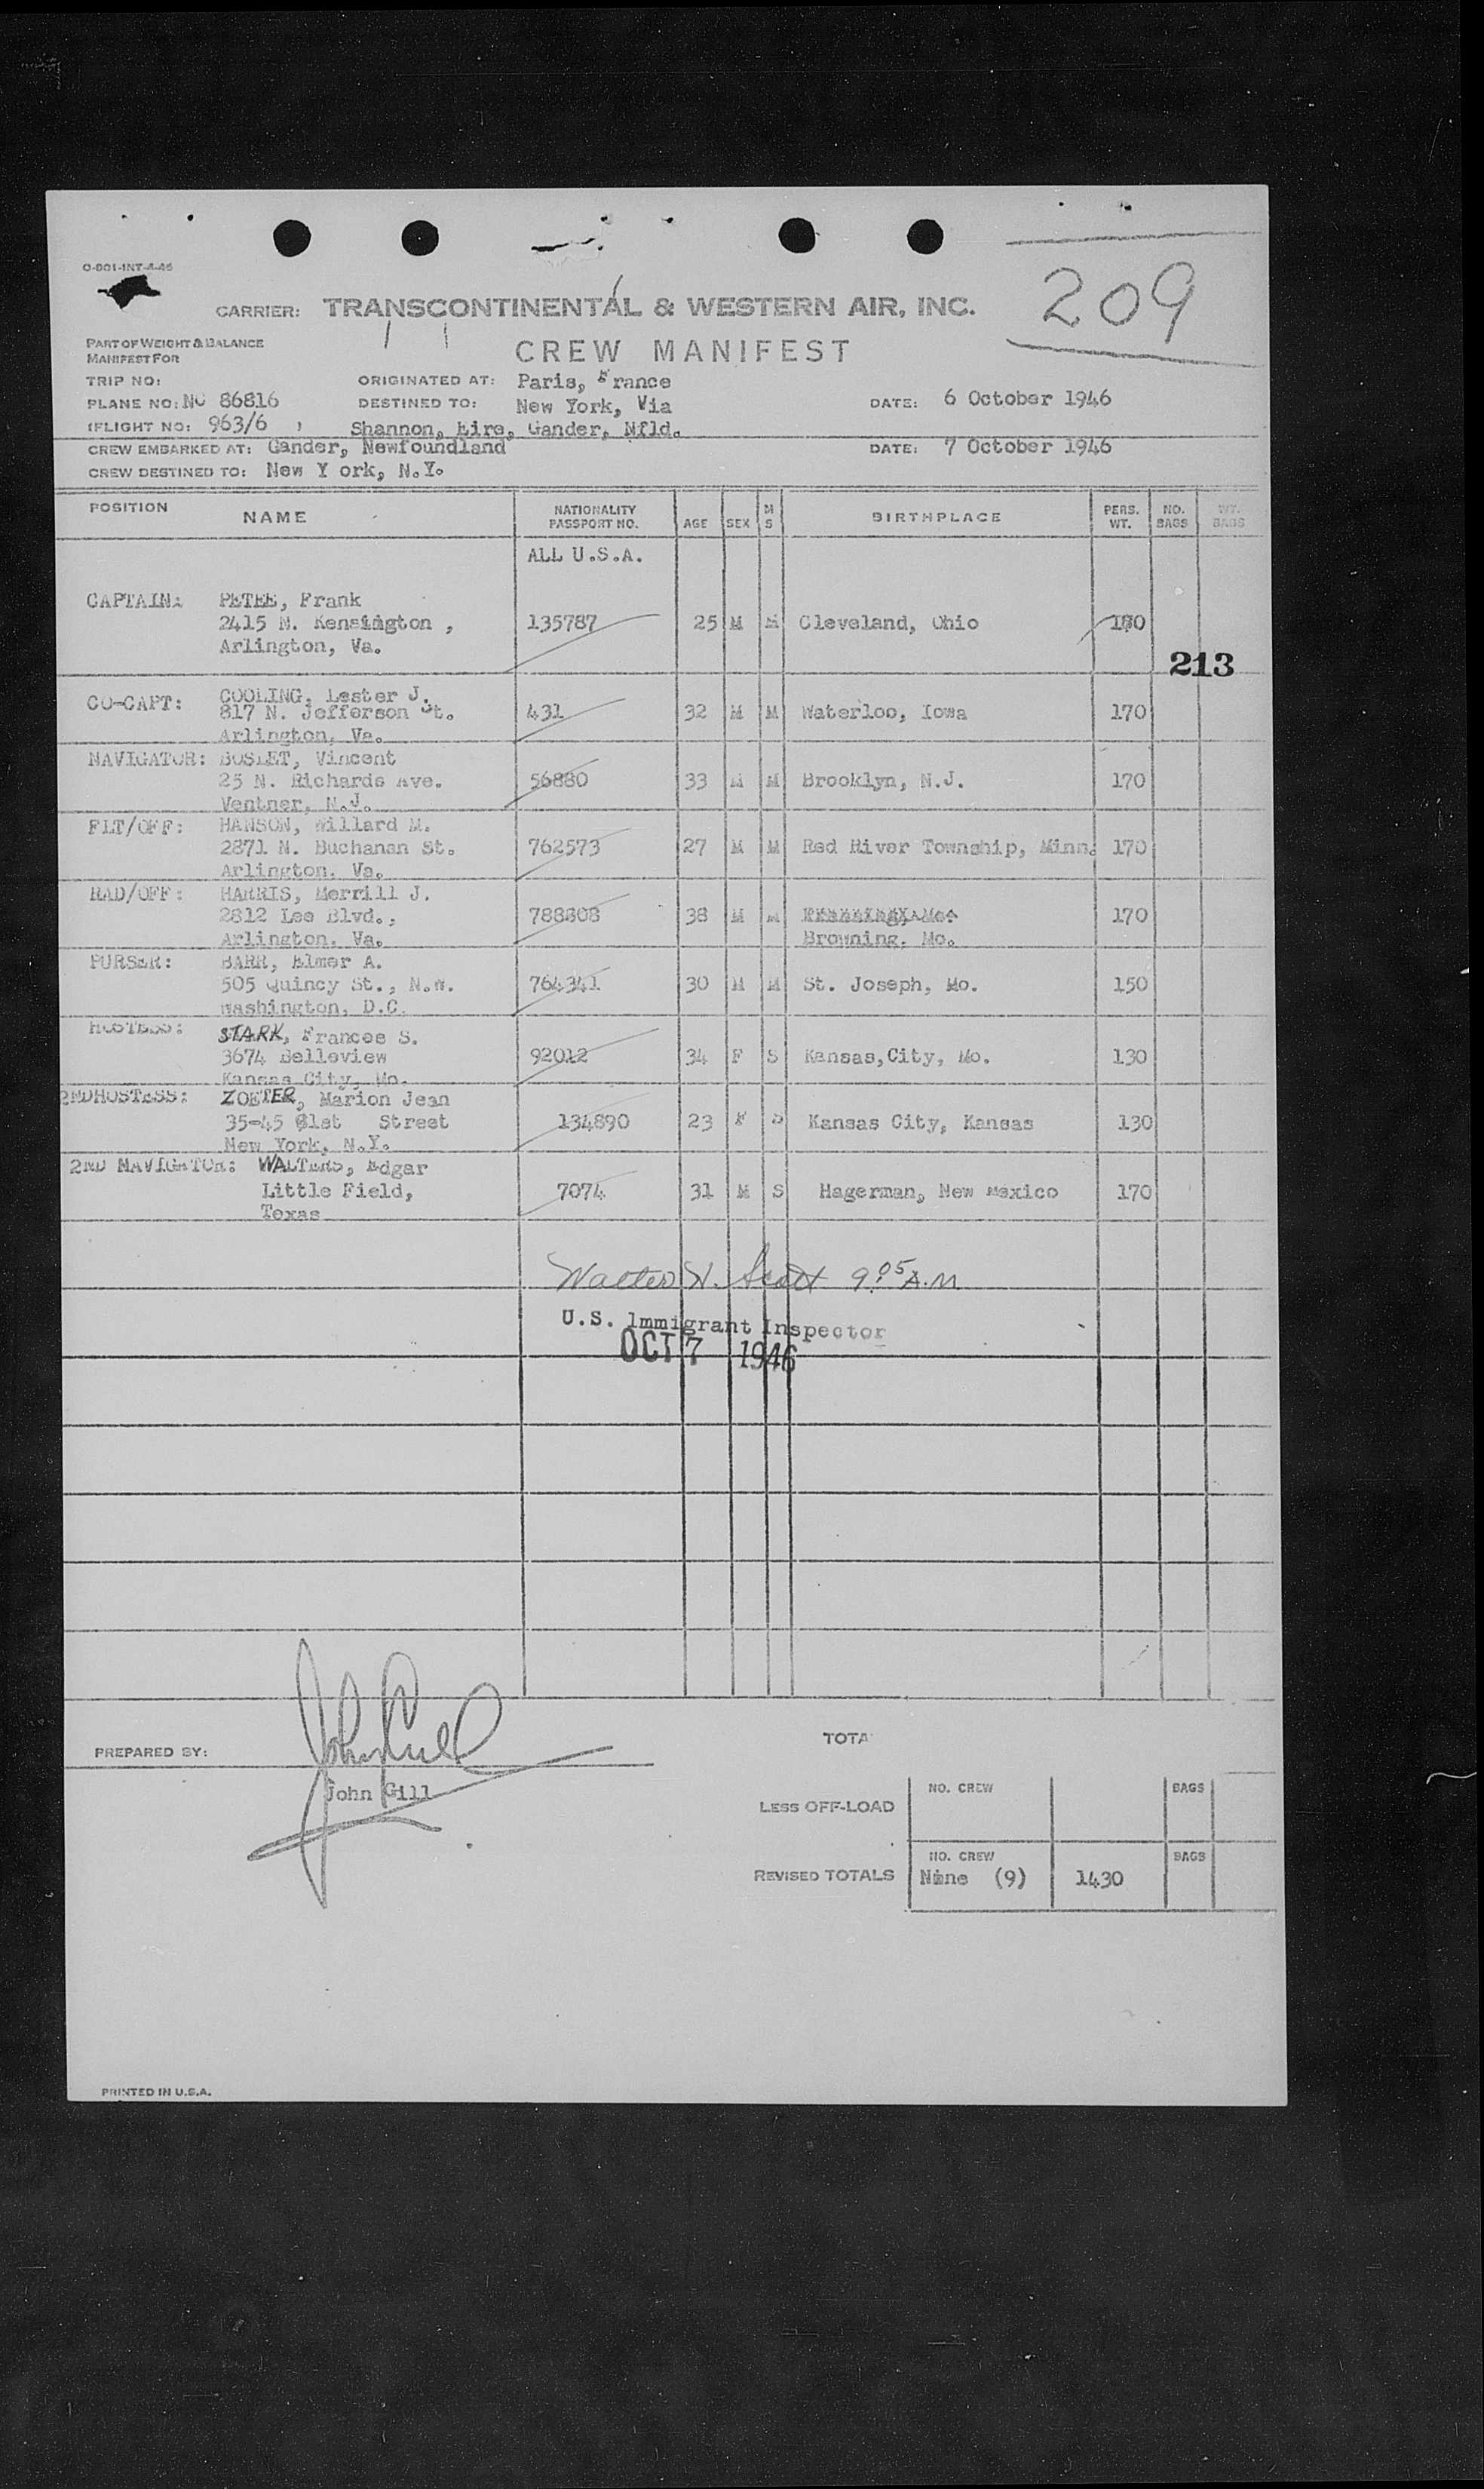 O-001-INT-4-46
209
CARRIER: TRANSCONTINENTAL & WESTERN AIR, INC.
PART OF WEIGHT & BALANCE
MANIFEST FOR
CREW MANIFEST
TRIP NO: ORIGINATED AT: Paris, France
PLANE NO: NC 86816 DESTINED TO: New York, Via DATE: 6 October 1946
FLIGHT NO: 963/6 , Shannon, Eire, Gander, Nfld.
CREW EMBARKED AT: Gander, Newfoundland DATE: 7 October 1946
CREW DESTINED TO: New Y ork, N.Y.
POSITION NAME NATIONALITY PASSPORT NO. AGE SEX M S BIRTHPLACE PERS. WT. NO. BAGS WT. BAGS
ALL U.S.A.
CAPTAIN: PETEE, Frank
2415 N. Kensington , 135787 25 M M Cleveland, Ohio 170
Arlington, Va.
213
CO-CAPT: COOLING, Lester J.
817 N. Jefferson St. 431 32 M M Waterloo, Iowa 170
Arlington, Va.
NAVIGATOR: BOSLET, Vincent
25 N. Richards Ave. 56880 33 M M Brooklyn, N.J. 170
Ventner, N.J.
FLT/OFF: HANSON, Willard M.
2871 N. Buchanan St. 762573 27 M M Red River Township, Minn. 170
Arlington. Va.
RAD/OFF: HARRIS, Merrill J.
2812 Lee Blvd., 788808 38 M M 170
Arlington. Va. Browning. Mo.
PURSER: BARR, Elmer A.
505 Quincy St., N.W. 764341 30 M M St. Joseph, Mo. 150
Washington, D.C.
HOSTESS: STARK, Frances S.
3674 Belleview 92012 34 F S Kansas,City, Mo. 130
Kansas City, Mo.
2NDHOSTESS: ZOETER, Marion Jean
35-45 81st Street 134890 23 F S Kansas City, Kansas 130
New York, N.Y.
2ND NAVIGATOR: WALTERS, Edgar
Little Field, 7074 31 M S Hagerman, New Mexico 170
Texas
Walter W. Scott 9:05 A.M
U.S. Immigrant Inspector
OCT 7 1946
PREPARED BY: John Gill TOTA
John Gill
LESS OFF-LOAD NO. CREW BAGS
REVISED TOTALS NO. CREW BAGS
Nine (9) 1430
PRINTED IN U.S.A.